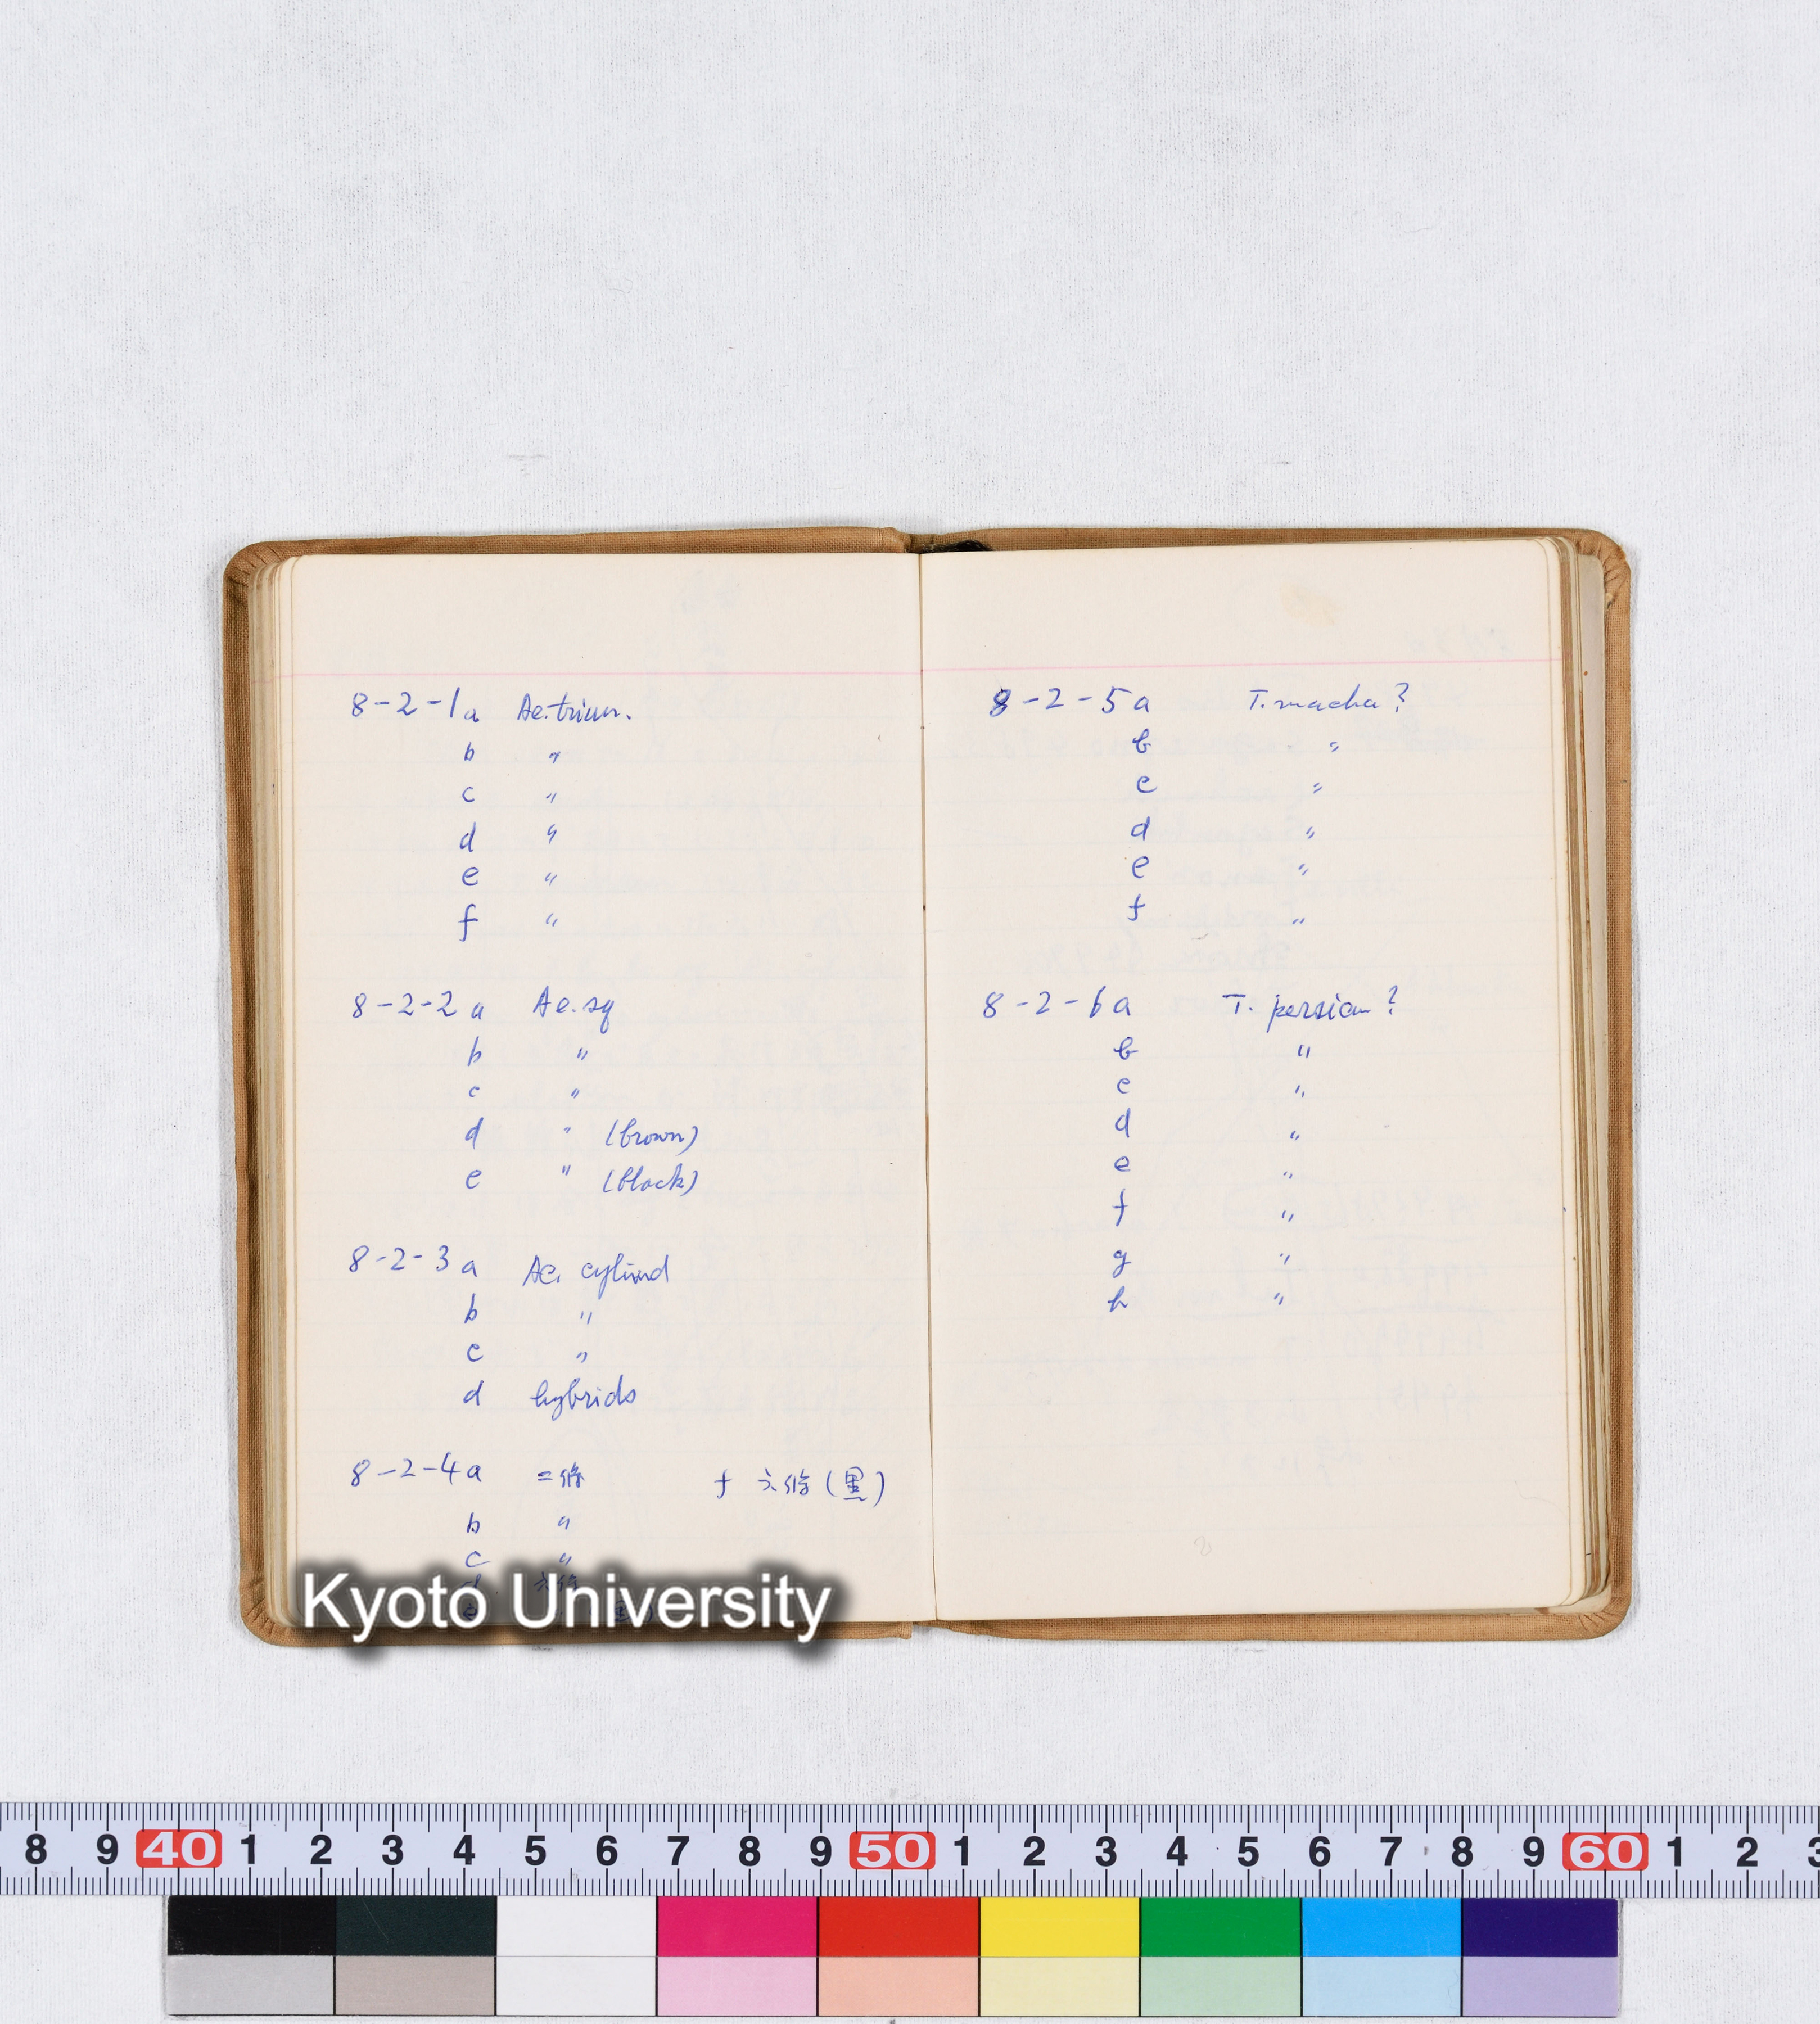 8-2-1a Ae.triun.
b 〃
c 〃
d 〃
e 〃
f 〃
8-2-2a Ae.sq
b 〃
c 〃
d 〃 (brown)
e 〃 (black)
8-2-3a Ae. cylind
b 〃
c 〃
d hybrids
8-2-4a 二條 f 六條(黒)
b 〃
c 〃
d 六條
e
8-2-5a T. macha?
b 〃
c 〃
d 〃
e 〃
f 〃
8-2-6a T. persicum?
b 〃
c 〃
d 〃
e 〃
f 〃
g 〃
h 〃
Kyoto University
8 9 40 1 2 3 4 5 6 7 8 9 50 1 2 3 4 5 6 7 8 9 60 1 2 3